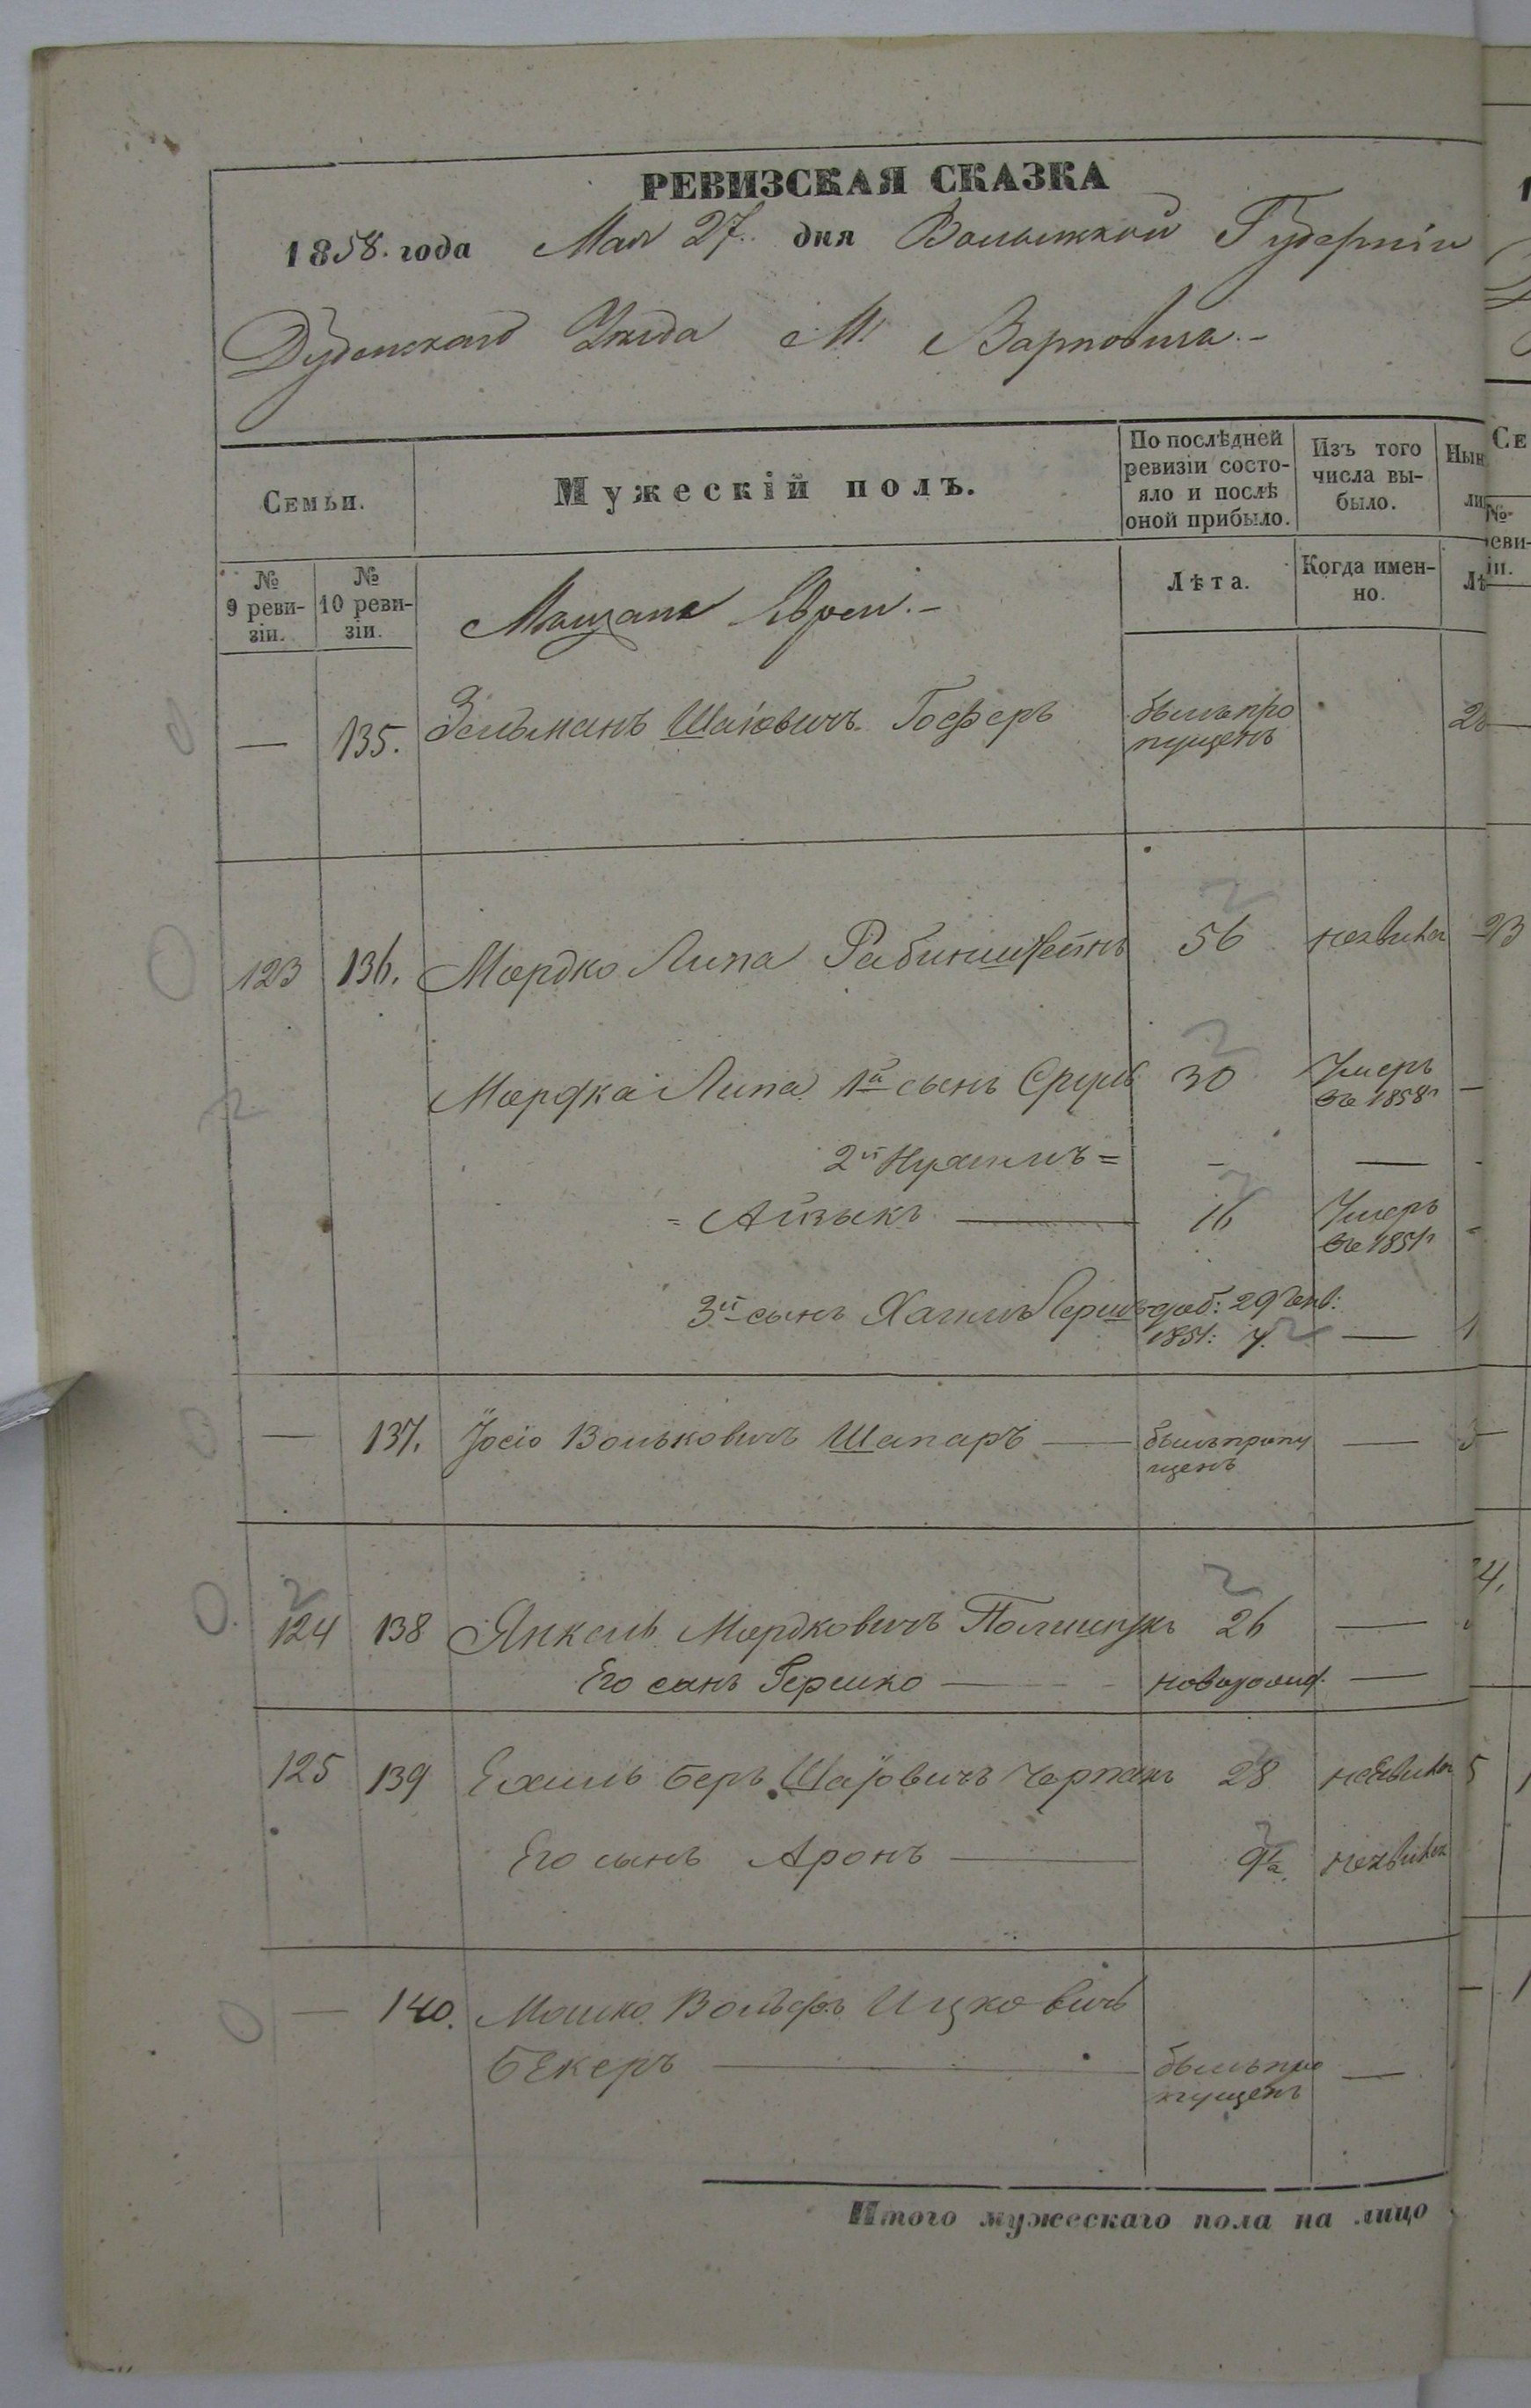 РЕВИЗСКАЯ СКАЗКА
1858. года Мая 27. дня Волынской Губерніи
Дубенскаго Уѣзда М. Варковича.-
Семьи.
Мужескій полъ.
По послѣдней ревизіи состо-
яло и послѣ
оной прибыло.
Изъ того
числа вы-
было.
№
9 реви-
зіи.
№
10 реви-
зіи.
Мещане Евреи.-
Лѣта.
Когда имен-
но.
— 135. Зельманъ Шаіовичъ Гоферъ былъ про
пущенъ
123 136. Мордко Липа Рабинштейнъ 56 неявился
Мордка Липа 1й сынъ Сруль 30 Умеръ
въ 1858
2й Нухимъ = - —
= Айзыкъ — 16 Умеръ
въ 1851
3й сынъ Хаимъ Герш
1851: —
— 137. Іосіо Вольковичъ Шапаръ — былъ пропу —
щенъ
124 138 Янкель Мордковичъ Полищукъ 26 —
Его сынъ Гершко — —
125 139 Ехиль Беръ Шаіовичъ 28 неявился
Его сынъ Аронъ — неявился
— 140. Мошко Вольфъ Ицковичъ
Бекеръ — былъ про —
пущенъ
Итого мужескаго пола на лицо